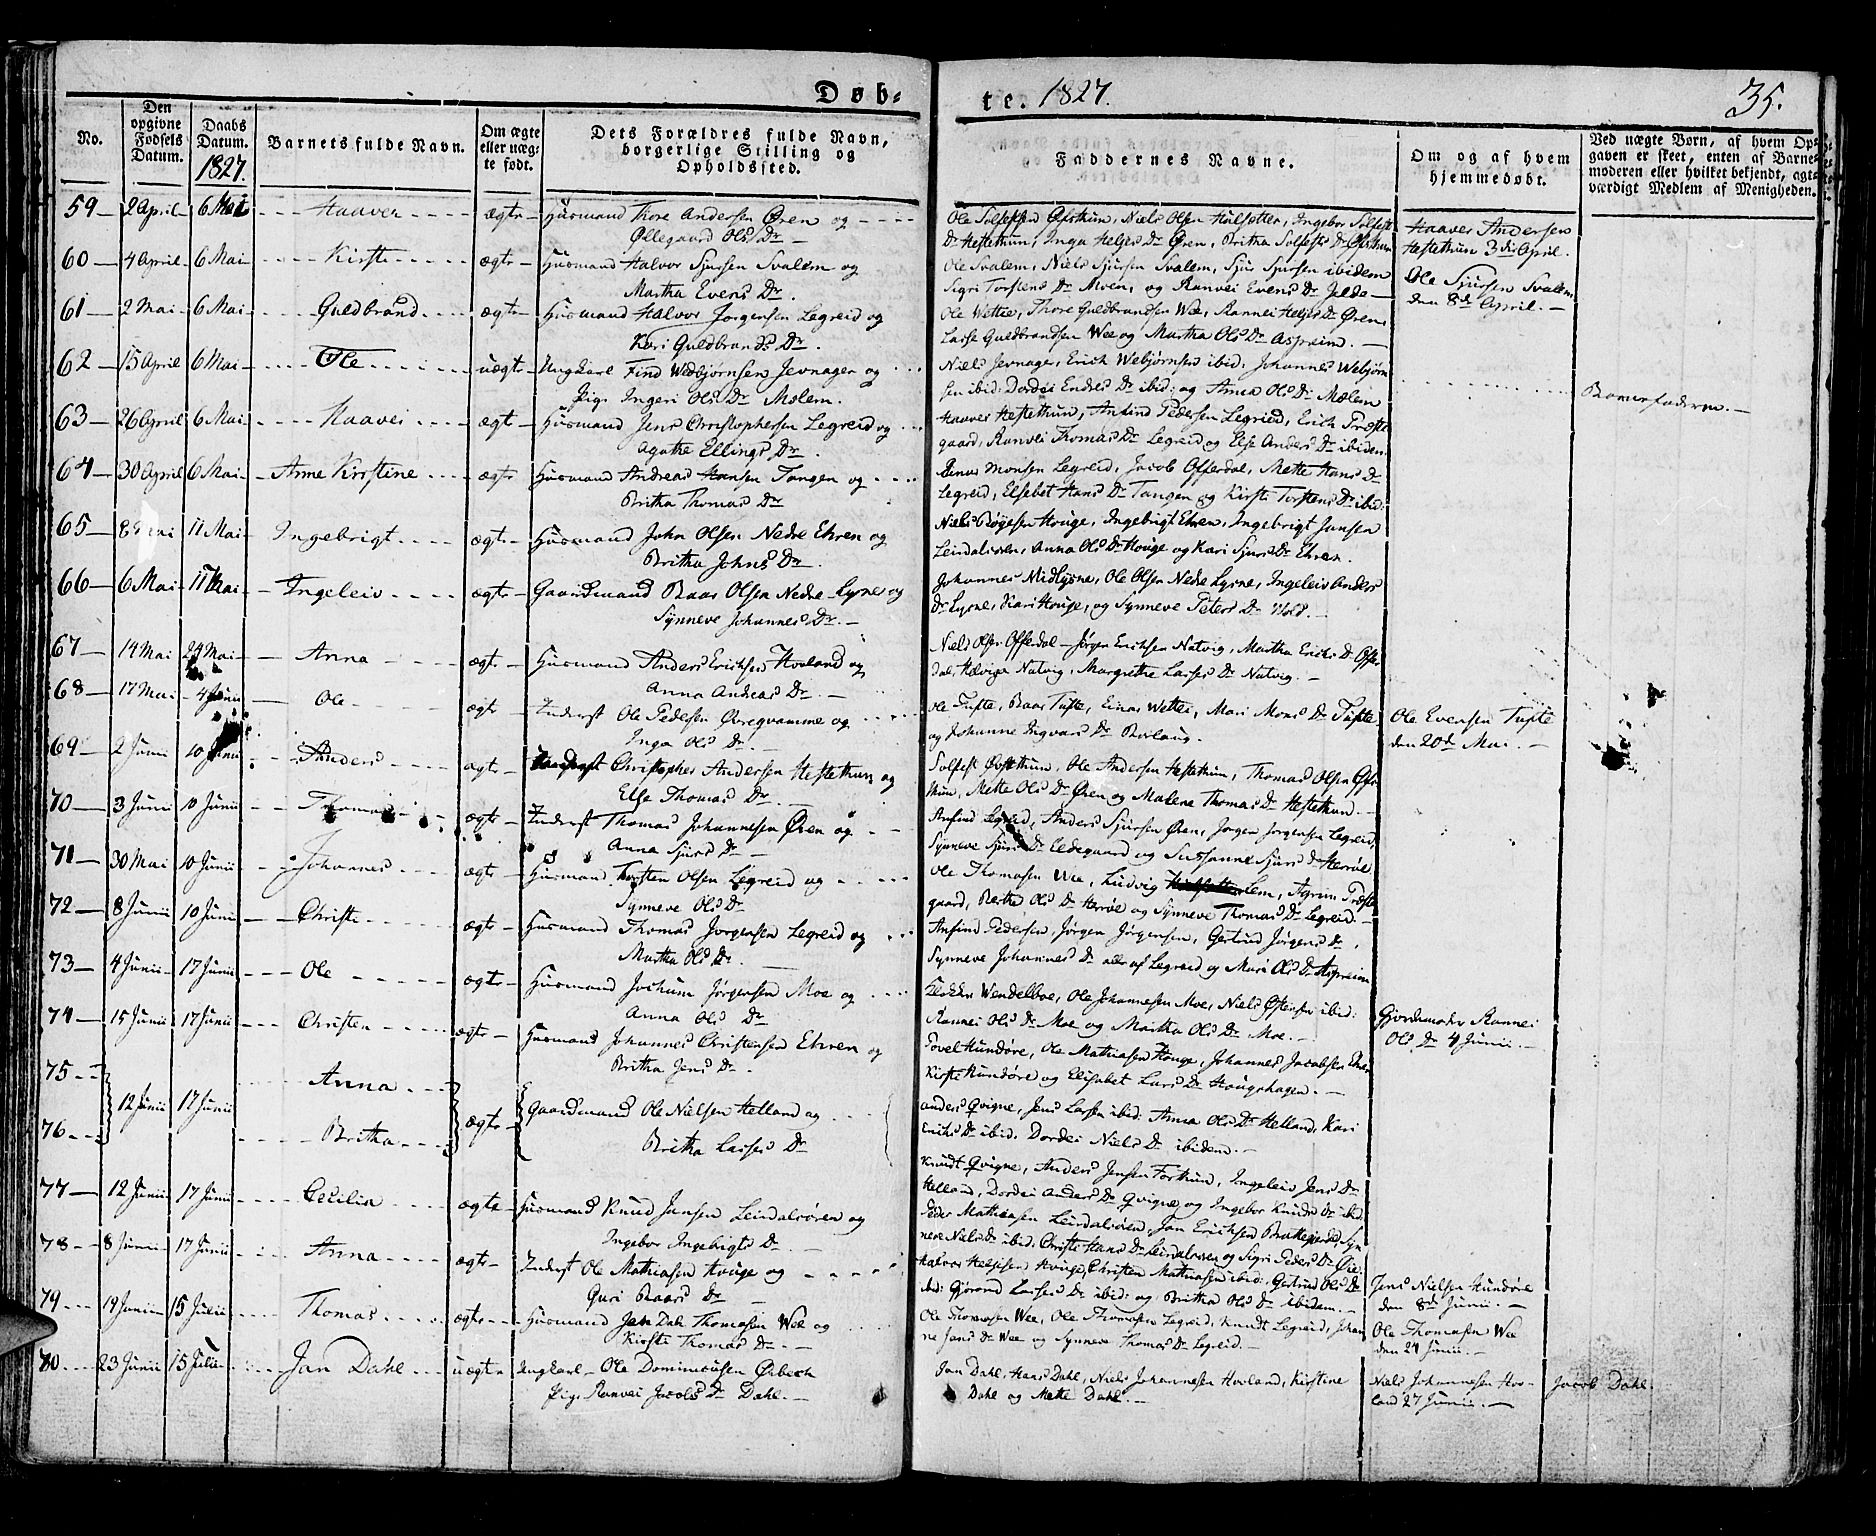 Døb-
te. 1827.
35.
No.
Den opgivne Fødsels Datum.
Daabs Datum. 1827.
Barnets fulde Navn.
Om ægte eller uægte født.
Dets Forældres fulde Navn, borgerlige Stilling og Opholdssted.
Faddernes Navne.
Om og af hvem hjemmedøbt.
Ved uægte Børn, af hvem Opgaven er skeet, enten af Barnemoderen eller hvilket bekjendt, agtværdigt Medlem af Menigheden.
59 2 April 6 Mai Haaver ægte Huusmand Thore Andersen Øren og
Øllegaard Ols Dr
Haaver Andersen
Hestethun 3die April.
60 4 April 6 Mai Kirsti ægte Huusmand Halvor Sjursen Svalem og
Martha Evens Dr.
Ole Svalem, Niels Sjursen Svalem, Sjur Sjursen ibidem
Sigri Torstens Dr Moen, og Ranvei Evens Dr Jelde
Ole Sjursen Svalem
den 8de April.
61 2 Mai 6 Mai Guldbrand ægte Huusmand Halvor Jørgensen Legreid og
Kari Guldbrands Dr.
Ole Wettie, Thore Guldbrandsen Wee, Rannei Heljes Dr Øren,
Lasse Guldbrandsen Wee og Martha Ols Dr Aspreim.
62 15 April 6 Mai Ole uægte Ungkarl Find Webjørnsen Jevnager og
Pig. Ingeri Ols Dr Mølem.
Niels Jevnager, Erich Webjørnsen ibid: Johannes Webjørn
sen ibid: Dordei Endres Dr ibid: og Anna Ols Dr Mølem
Barnefaderen.
63 26 April 6 Mai Haavei ægte Huusmand Jens Christophersen Legreid og
Agathe Ellings Dr.
Haaver Hestethun, Anfind Pedersen Legreid, Erich Præste
gaard, Ranvei Thomas Dr Legreid og Else Anders Dr ibidem.
64 30 April 6 Mai Anne Kirstine ægte Huusmand Andreas Hansen Tangen og
Britha Thomas Dr
Monsen Legreid, Jacob Offerdal, Mette Hans Dr
Legreid, Elsebet Hans Dr Tangen og Kirsti Torstens Dr ibid:
65 8 Mai 11 Mai Ingebrigt ægte Huusmand John Olsen Nedre Ehren og
Britha Johns Dr.
Niels Bøyesen Houge, Ingebrigt Ehren, Ingebrigt Jansen
Leirdalsøren, Anna Ols Dr Houge og Kari Sjurs Dr Ehren.
66 6 Mai 11 Mai Ingeleiv ægte Gaardmand Baar Olsen Nedre Lysne og
Synneve Johannes Dr.
Johannes Midlysne, Ole Olsen Nedre Lysne, Ingeleiv Anders
Dr Lysne, Kari Houge, og Synneve Peters Dr Wold.
67 14 Mai 24 Mai Anna ægte Huusmand Anders Erichsen Hovland og
Anna Andreas Dr.
Niels Olsen Offerdal, Jørgen Erichsen Natvig, Martha Erichs Dr Offer
dal, Natvig, Margrethe Lasses Dr Natvig.
68 17 Mai 4 Junii Ole ægte Inderst Ole Pedersen Øvregvamme og
Inga Ols Dr.
Ole Tufte, Baar Tufte, Einar Wettie, Mari Mons Dr Tufte
og Johanne Ingvars Dr Borlaug.
Ole Evensen Tufte
den 20de Mai.
69 2 Junii 10 Junii Anders ægte Christopher Andersen Hestethun og
Else Thomas Dr.
Solfest Øvstethun, Ole Andersen Hestethun, Thomas Olsen
thun, Mette Ols Dr Øren og Malene Thomas Dr Hestethun.
70 3 Junii 10 Junii Thomas ægte Inderst Thomas Johannesen Øren og
Anna Sjurs Dr
Anfind Legreid, Anders Sjursen Øren, Jørgen Jørgensen Legreid
Synneve Sjurs Dr Eldegaard og Susanne Sjurs Dr Herrøe
71 30 Mai 10 Junii Johannes ægte Huusmand Torsten Olsen Legreid og
Synneve Ols Dr
Ole Thomasen Wee, Ludvig Lem, Præste
gaard, Berthe Ols Dr Herrøe og Synneve Thomas Dr Legreid.
72 8 Junii 10 Junii Christi ægte Huusmand Thomas Jørgensen Legreid og
Martha Ols Dr.
Anfind Pedersen, Jørgen Jørgensen, Gertrud Jørgens Dr,
Synneve Johannes Dr alle af Legreid og Mari Ols Dr Aspreim
73 4 Junii 17 Junii Ole ægte Huusmand Jochum Jørgensen Moe og
Anna Ols Dr
Wendelboe, Ole Johannesen Moe, Niels Østensen ibid:
Rannei Ols Dr Moe og Martha Ols Dr Moe.
Gjordemoder Rannei
Ols Dr 4 Junii.
74 15 Junii 17 Junii Christen ægte Huusmand Johannes Christensen Ehren og
Britha Jens Dr.
Povel Hundøre, Ole Mathiasen Houge, Johannes Jacobsen Ehren
Kirsti Hundøre og Elisabet Lars Dr Hougshagen.
75 Anna
12 Junii 17 Junii ægte Gaardmand Ole Nielsen Helland og
76 Britha
Britha Lasses Dr
Anders Qvigne, Jens Larsen ibid. Anna Ols Dr Helland, Kari
Erichs Dr ibid. Dordei Niels Dr ibidem.
77 12 Junii 17 Junii Cecilia ægte Huusmand Knud Jansen Leirdalsøren og
Ingebor Ingebrigts Dr.
Knudt Qvigne, Anders Jensen Forthun, Ingeleiv Jens Dr
Helland, Dordei Anders Dr Qvigne og Ingebor Knuds Dr ibid:
78 8 Junii 17 Junii Anna ægte Inderst Ole Mathiasen Houge og
Guri Baars Dr
Peder Mathiasen Leirdalsøren, Jan Erichsen
neve Niels Dr ibid: Christi Hans Dr Leirdalsøren og Sigri Peders Dr Øie.
Halvor Heljesen Houge, Christen Mathiasen ibid: Gertrud Ols Dr
ibid: Gjørond Lasses Dr ibid: og Britha Ols Dr ibidem.
Jens Nielsen Hundøre
den 8de Junii.
79 19 Junii 15 Julii Thomas ægte Huusmand Jan Dahl Thomasen Wee og
Kirsti Thomas Dr.
Ole Thomasen Wee, Ole Thomasen Legreid, Knudt Legreid, Johan
ne Jans Dr Wee og Synneve Thomas Dr Legreid.
Ole Thomasen Wee
den 24 Junii.
80 23 Junii 15 Julii Jan Dahl uægte Ungkarl Ole Dominicusen Ørbech
Pig. Ranvei Jacobs Dr Dahl.
Jan Dahl, Hans Dahl, Niels Johannesen Hovland, Kirstine
Dahl og Mette Dahl.
Niels Johannesen Hov-
land 27 Junii.
Jacob Dahl.